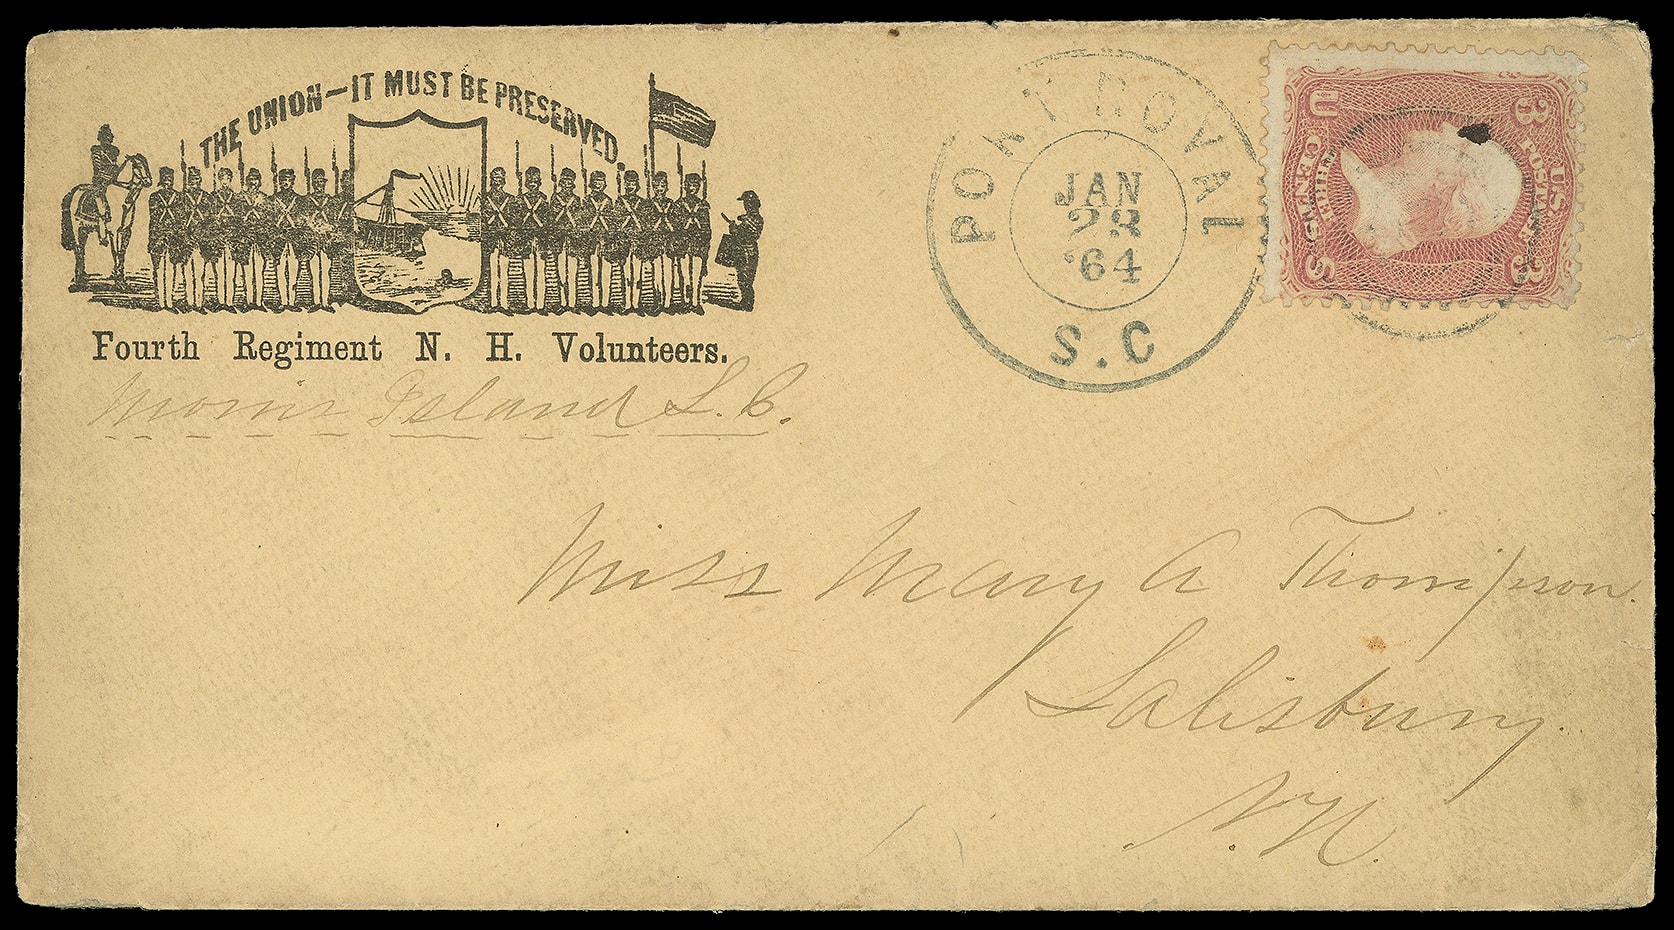 THE UNION—IT MUST BE PRESERVED.
Fourth Regiment N. H. Volunteers.
Morris Island S. C.
PORT ROYAL
JAN
23
'64
S.C
U.S. POSTAGE
3 3
THREE CENTS
U S
Miss Mary A Thompson.
Salisbury
N.H.